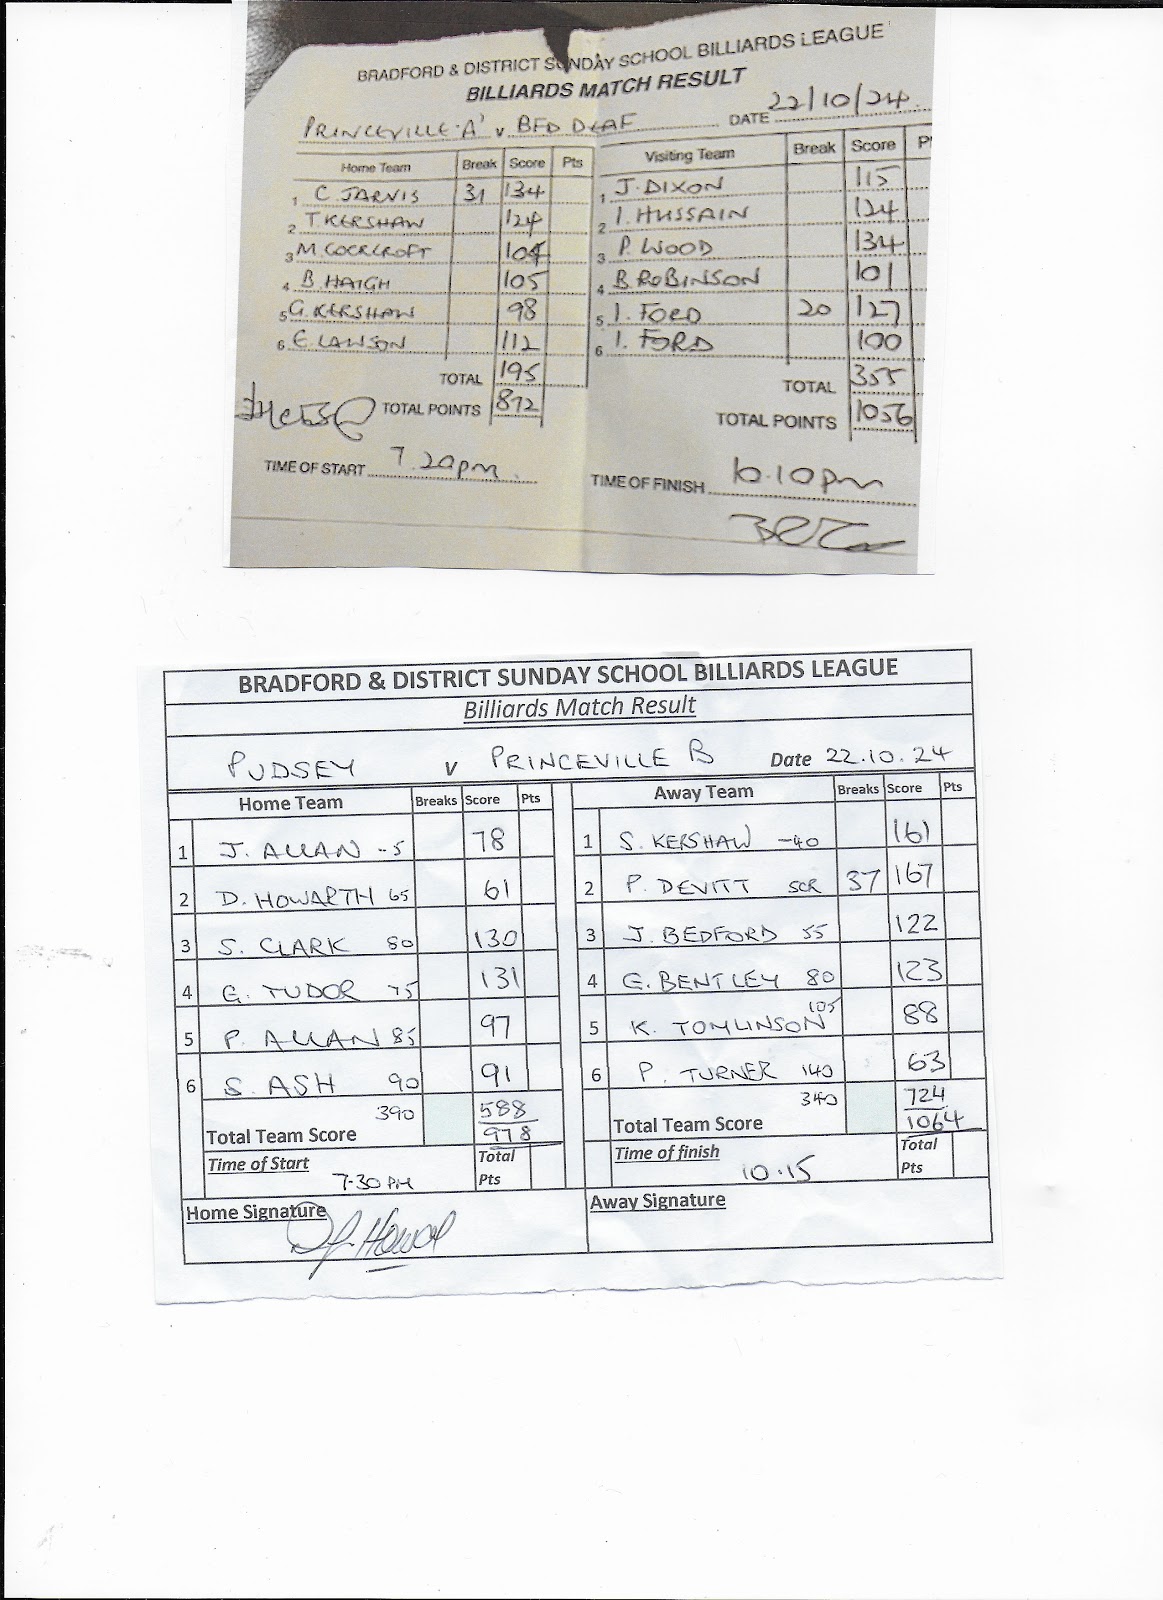 BRADFORD & DISTRICT SUNDAY SCHOOL BILLIARDS LEAGUE
BILLIARDS MATCH RESULT
PRINCEVILLE 'A' v BFD DEAF DATE 22/10/24
Home Team Break Score Pts Visiting Team Break Score P
1 C. JARVIS 31 134 1 J. DIXON 115
2 T. KERSHAW 124 2 I. HUSSAIN 124
3 M. COCKCROFT 104 3 P. WOOD 134
4 B. HAIGH 105 4 B. ROBINSON 101
5 G. KERSHAW 98 5 I. FORD 20 127
6 E. LAWSON 112 6 I. FORD 100
TOTAL 195 TOTAL 355
TOTAL POINTS 872 TOTAL POINTS 1056
TIME OF START 7.20pm. TIME OF FINISH 10.10pm
BRADFORD & DISTRICT SUNDAY SCHOOL BILLIARDS LEAGUE
Billiards Match Result
PUDSEY v PRINCEVILLE B Date 22.10.24
Home Team Breaks Score Pts Away Team Breaks Score Pts
1 J. ALLAN -5 78 1 S. KERSHAW -40 161
2 D. HOWARTH 65 61 2 P. DEVITT SCR 37 167
3 S. CLARK 80 130 3 J. BEDFORD 55 122
4 G. TUDOR 75 131 4 G. BENTLEY 80 123
5 P. ALLAN 85 97 5 K. TOMLINSON 105 88
6 S. ASH 90 91 6 P. TURNER 140 63
390 588 340 724
Total Team Score 978 Total Team Score 1064
Time of Start 7-30 PM Total Pts Time of finish 10.15 Total Pts
Home Signature Away Signature